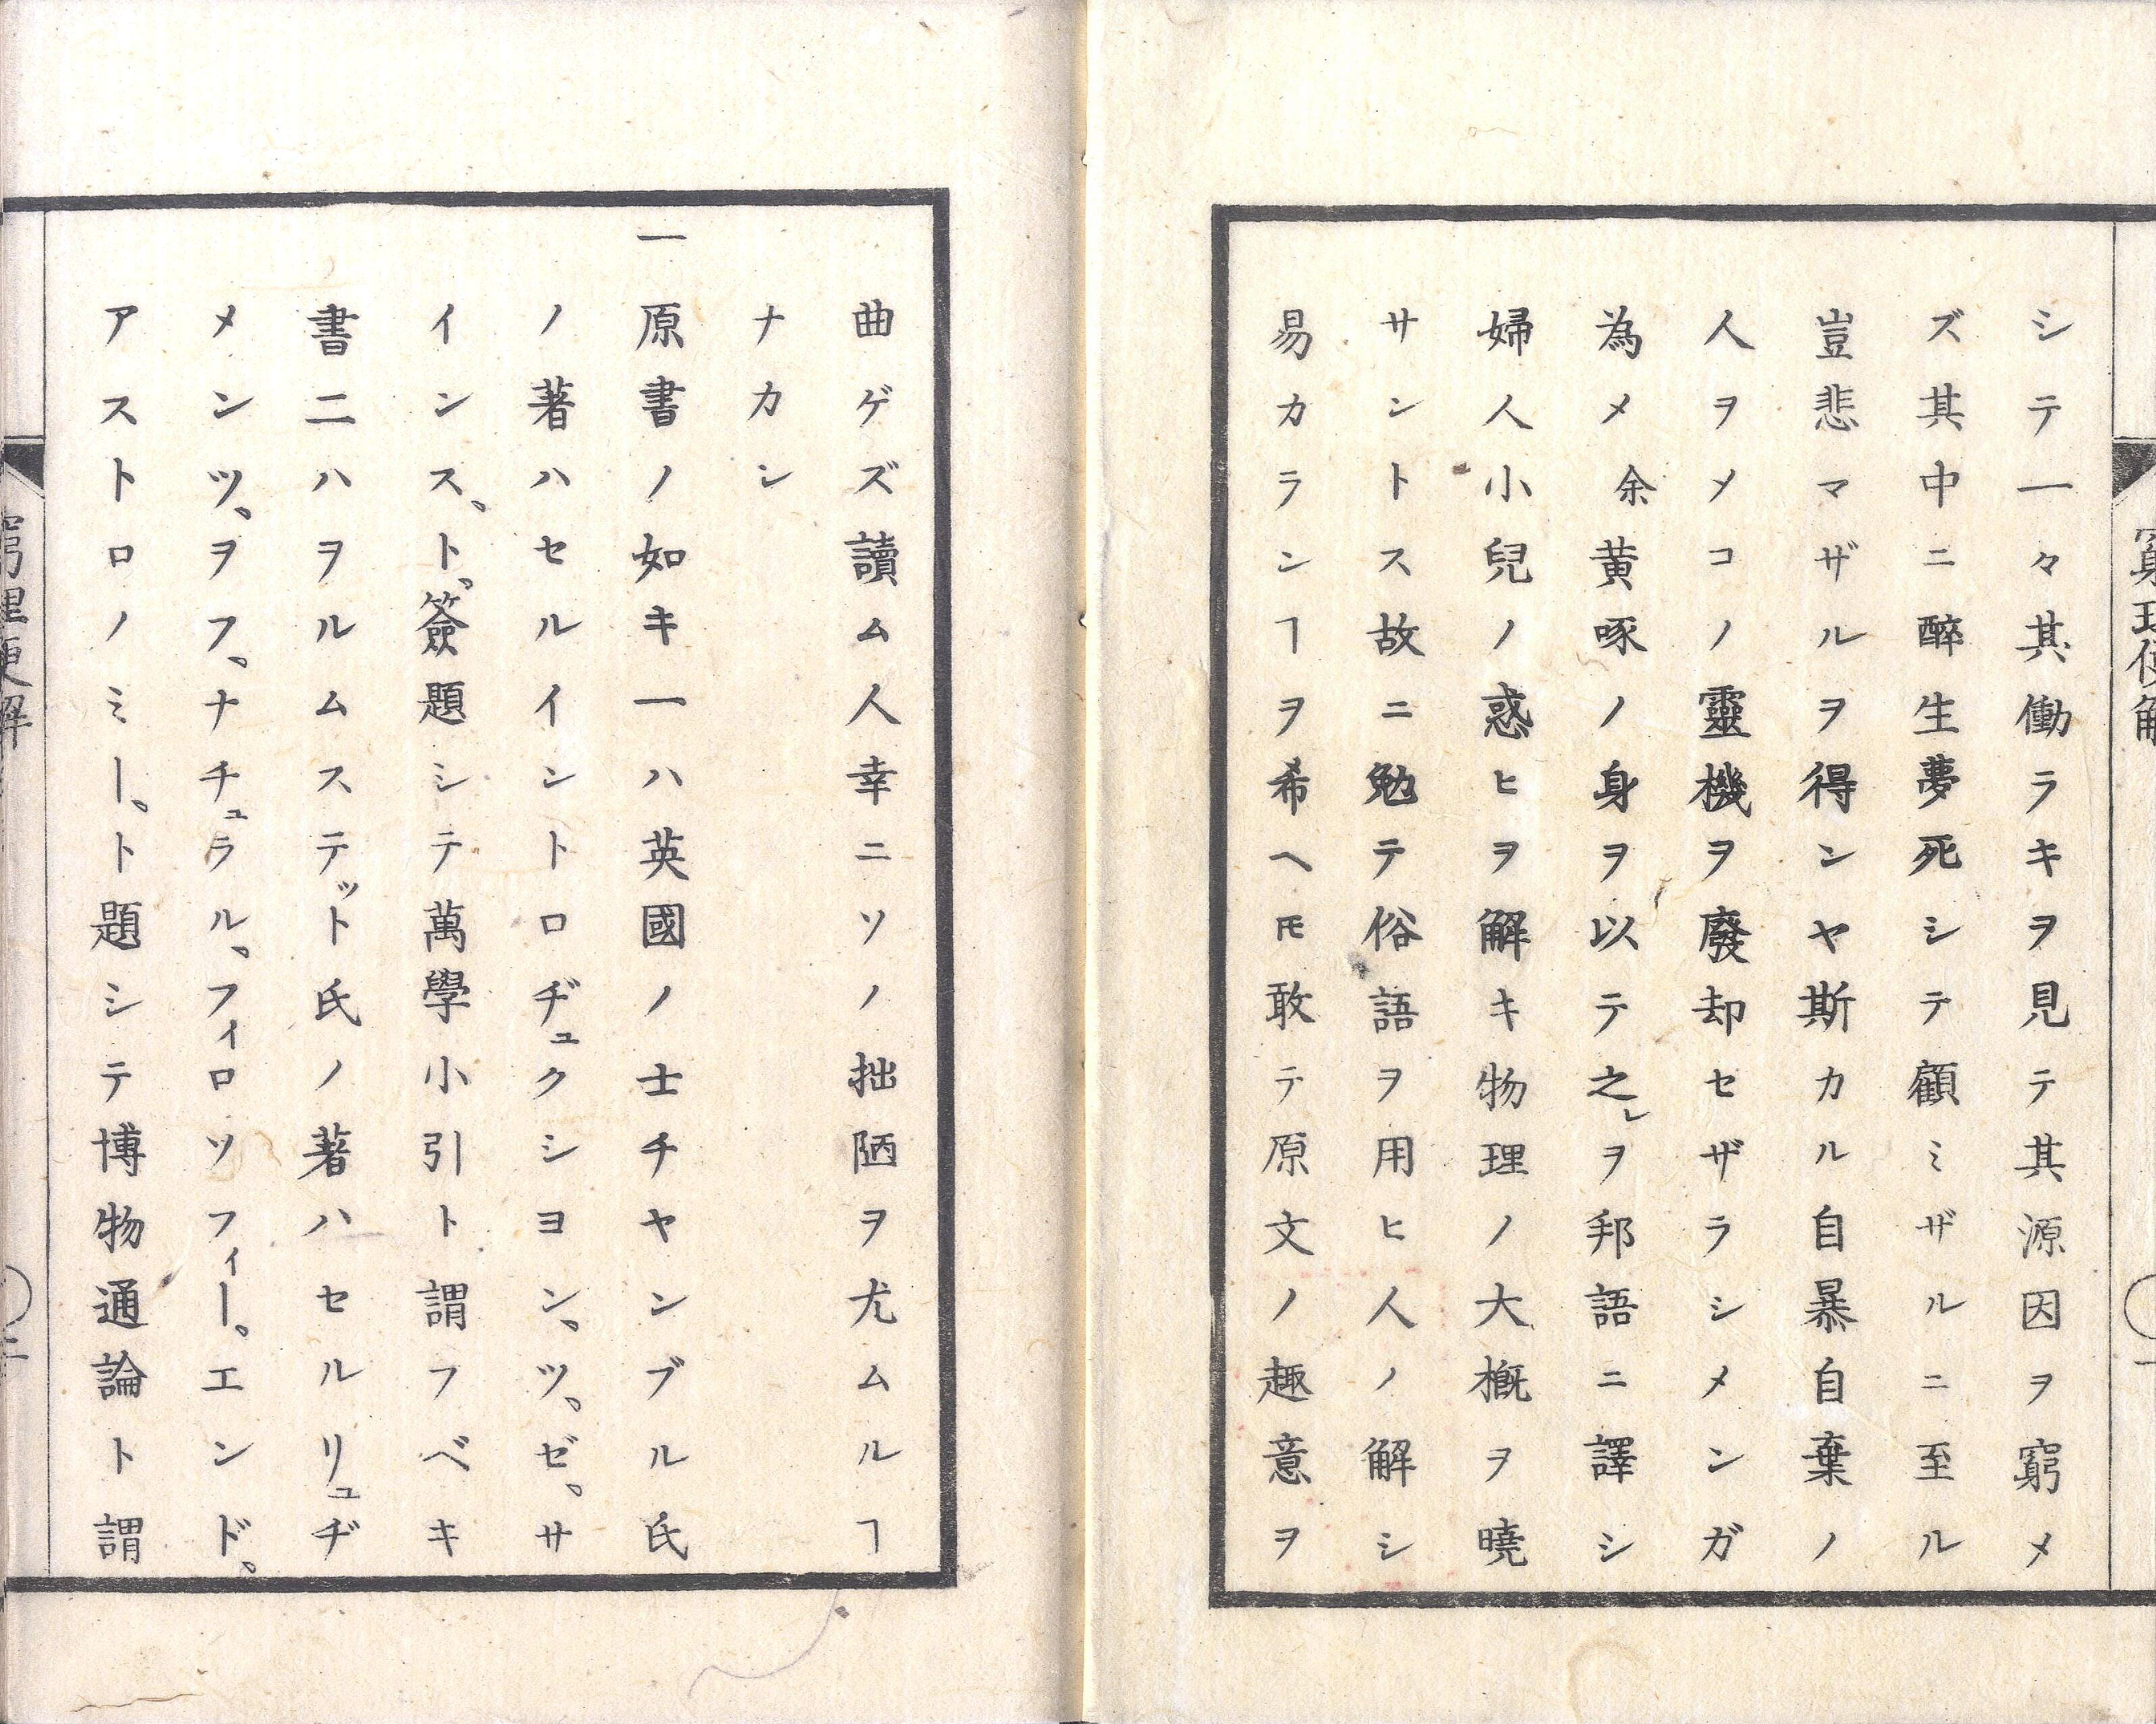 シテ一々其働ラキヲ見テ其源因ヲ窮メ
ズ其中ニ醉生夢死シテ顧ミザルニ至ル
豈悲マザルヲ得ンヤ斯カル自暴自棄ノ
人ヲメコノ靈機ヲ廢却セザラシメンガ
為メ余黄啄ノ身ヲ以テ之レヲ邦語ニ譯シ
婦人小兒ノ惑ヒヲ解キ物理ノ大概ヲ曉
サントス故ニ勉テ俗語ヲ用ヒ人ノ解シ
易カランヿヲ希ヘ𪜈敢テ原文ノ趣意ヲ
曲ゲズ讀ム人幸ニソノ拙陋ヲ尤ムルヿ
ナカン
一原書ノ如キ一ハ英國ノ士チヤンブル氏
ノ著ハセルイントロヂュクシヨン、ツ、ゼ、サ
インス、ト、簽題シテ萬學小引ト謂フベキ
書二ハヲルムステット氏ノ著ハセルリュヂ
メンツ、ヲフ、ナチュラル、フィロソフィー、エンド、
アストロノミー、ト題シテ博物通論ト謂
窮理便解
二